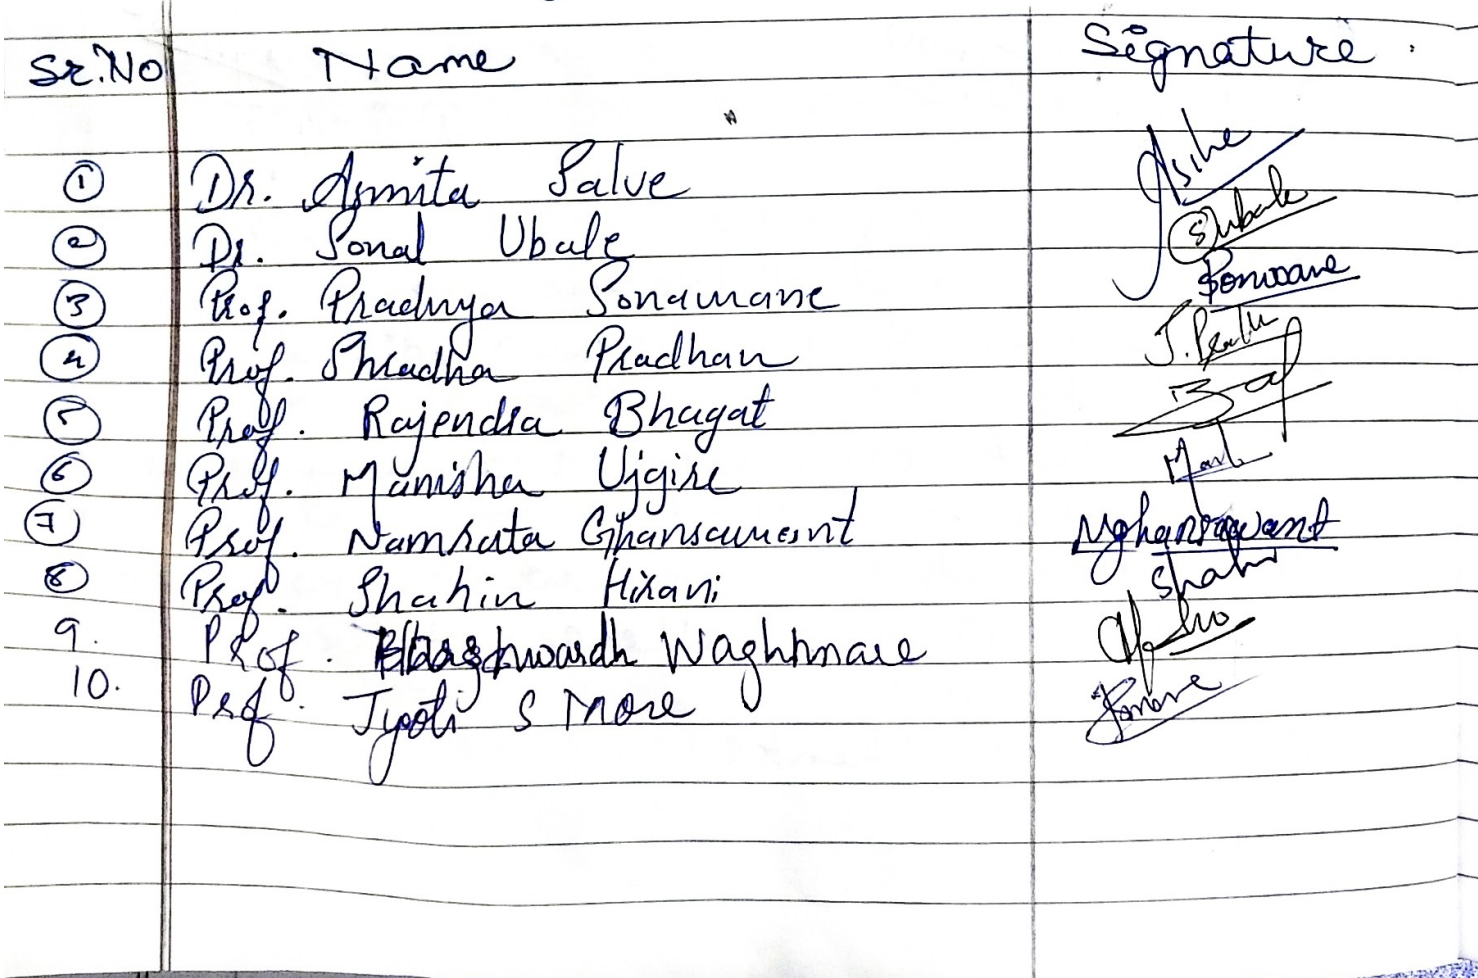 Sr.No Name Signature
1 Dr. Asmita Salve
2 Dr. Sonal Ubale Subale
3 Prof. Pradnya Sonawane Sonawane
4 Prof. Shradha Pradhan
5 Prof. Rajendra Bhagat
6 Prof. Manisha Ujgire
7 Prof. Namrata Ghansawant Nghansawant
8 Prof. Shahin Hirani Shahin
9. Prof. Waghmare
10. Prof. Jyoti S More